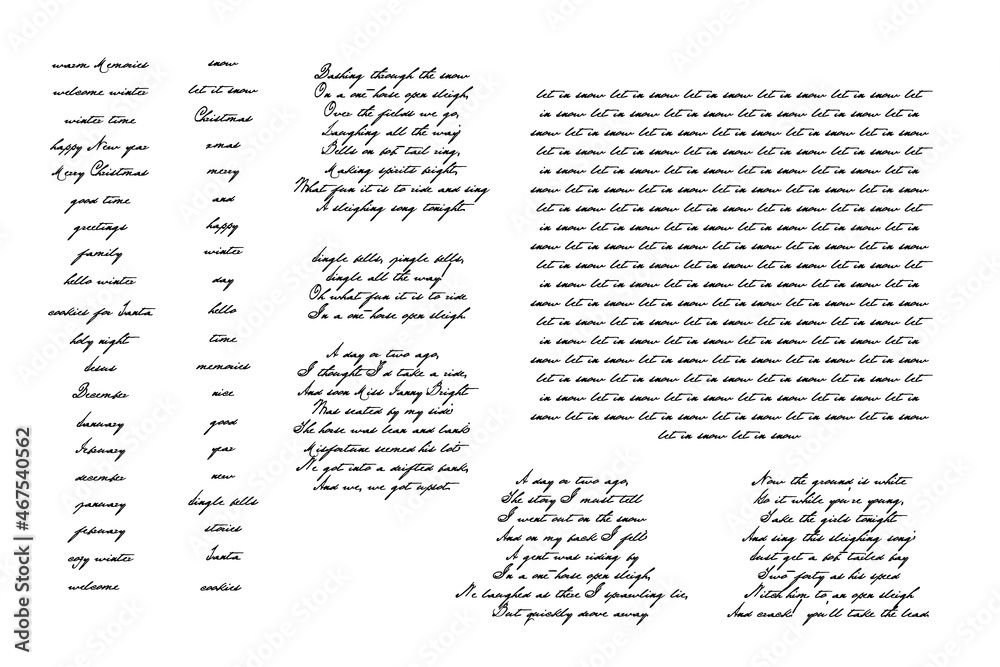 warm Memories
welcome winter
winter time
happy New year
Merry Christmas
good time
greetings
family
hello winter
cookies for Santa
holy night
Jesus
December
January
February
december
january
february
cozy winter
welcome
snow
let it snow
Christmas
xmas
merry
and
happy
winter
day
hello
time
memories
nice
good
year
new
Jingle bells
stories
Santa
cookies
Dashing through the snow
On a one-horse open sleigh,
Over the fields we go,
Laughing all the way
Bells on bob tail ring,
Making spirits bright,
What fun it is to ride and sing
A sleighing song tonight.
Jingle bells, jingle bells,
Jingle all the way!
Oh what fun it is to ride
In a one-horse open sleigh.
A day or two ago,
I thought I'd take a ride,
And soon Miss Fanny Bright
Was seated by my side
The horse was lean and lank
Misfortune seemed his lot
We got into a drifted bank,
And we, we got upsot.
let in snow let in snow let in snow let in snow let in snow let
in snow let in snow let in snow let in snow let in snow let in
snow let in snow let in snow let in snow let in snow let in snow
let in snow let in snow let in snow let in snow let in snow let
in snow let in snow let in snow let in snow let in snow let in
snow let in snow let in snow let in snow let in snow let in snow
let in snow let in snow let in snow let in snow let in snow let
in snow let in snow let in snow let in snow let in snow let in
snow let in snow let in snow let in snow let in snow let in snow
let in snow let in snow let in snow let in snow let in snow let
in snow let in snow let in snow let in snow let in snow let in
snow let in snow let in snow let in snow let in snow let in snow
let in snow let in snow let in snow let in snow let in snow let
in snow let in snow let in snow let in snow let in snow let in
snow let in snow let in snow let in snow let in snow let in snow
let in snow let in snow let in snow let in snow let in snow let
in snow let in snow let in snow let in snow let in snow let in
snow let in snow let in snow let in snow let in snow let in snow
let in snow let in snow
A day or two ago,
The story I must tell
I went out on the snow
And on my back I fell
A gent was riding by
In a one-horse open sleigh,
He laughed as there I sprawling lie,
But quickly drove away.
Now the ground is white
Go it while you're young,
Take the girls tonight
And sing this sleighing song
Just get a bob tailed bay
Two-forty as his speed
Hitch him to an open sleigh
And crack! you'll take the lead.
Adobe Stock | #467540562